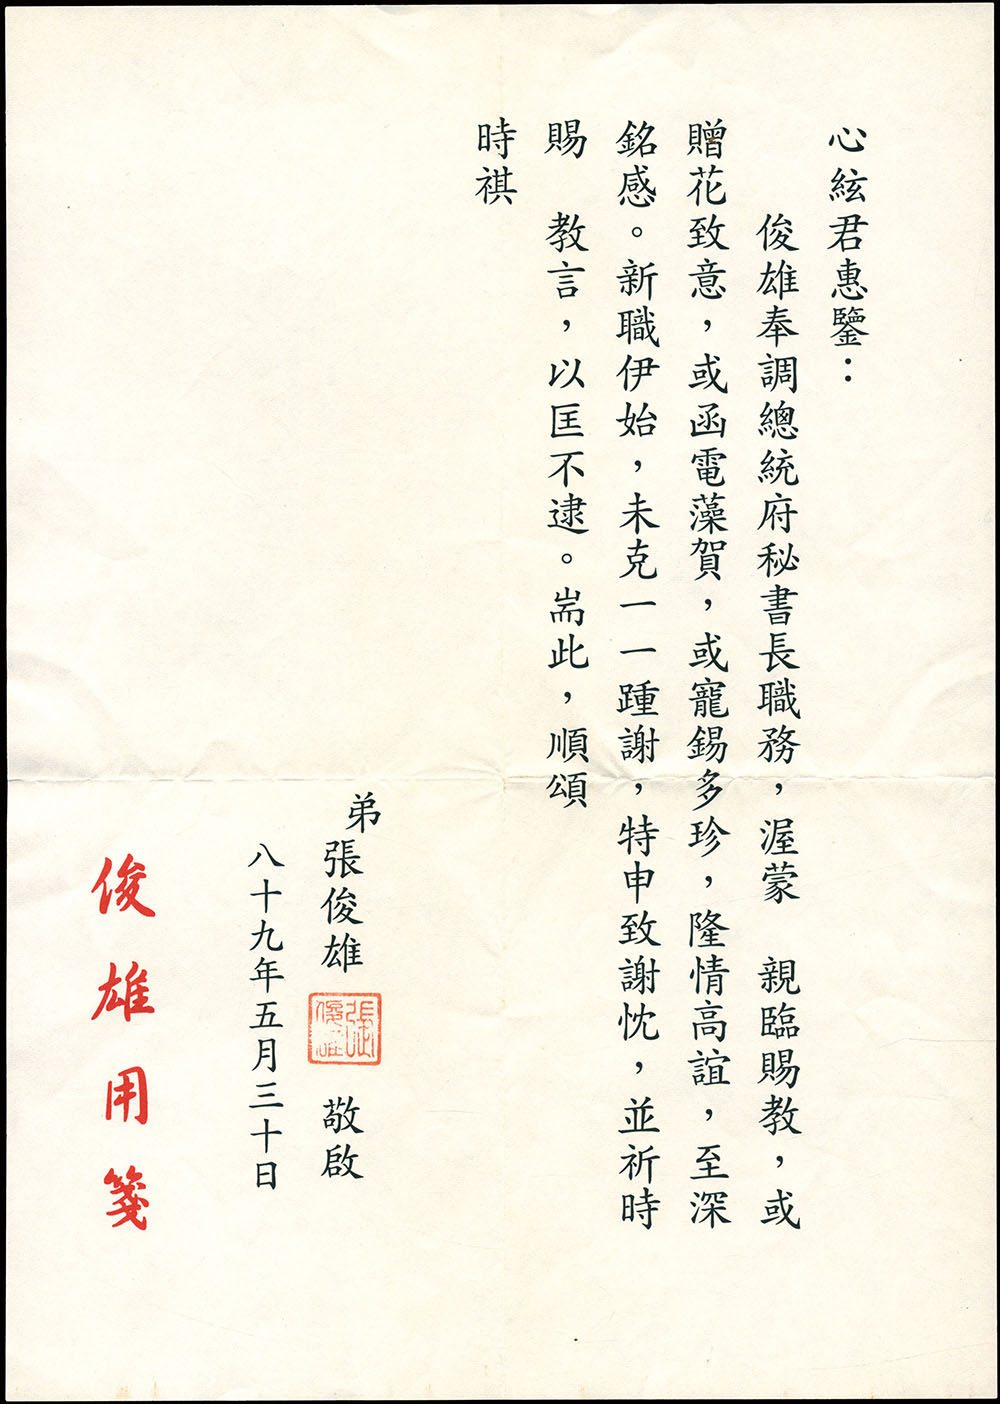 心絃君惠鑒：
俊雄奉調總統府秘書長職務，渥蒙　親臨賜教，或
贈花致意，或函電藻賀，或寵錫多珍，隆情高誼，至深
銘感。新職伊始，未克一一踵謝，特申致謝忱，並祈時
賜　教言，以匡不逮。耑此，順頌
時祺
弟張俊雄　敬啟
張俊雄
八十九年五月三十日
俊雄用箋